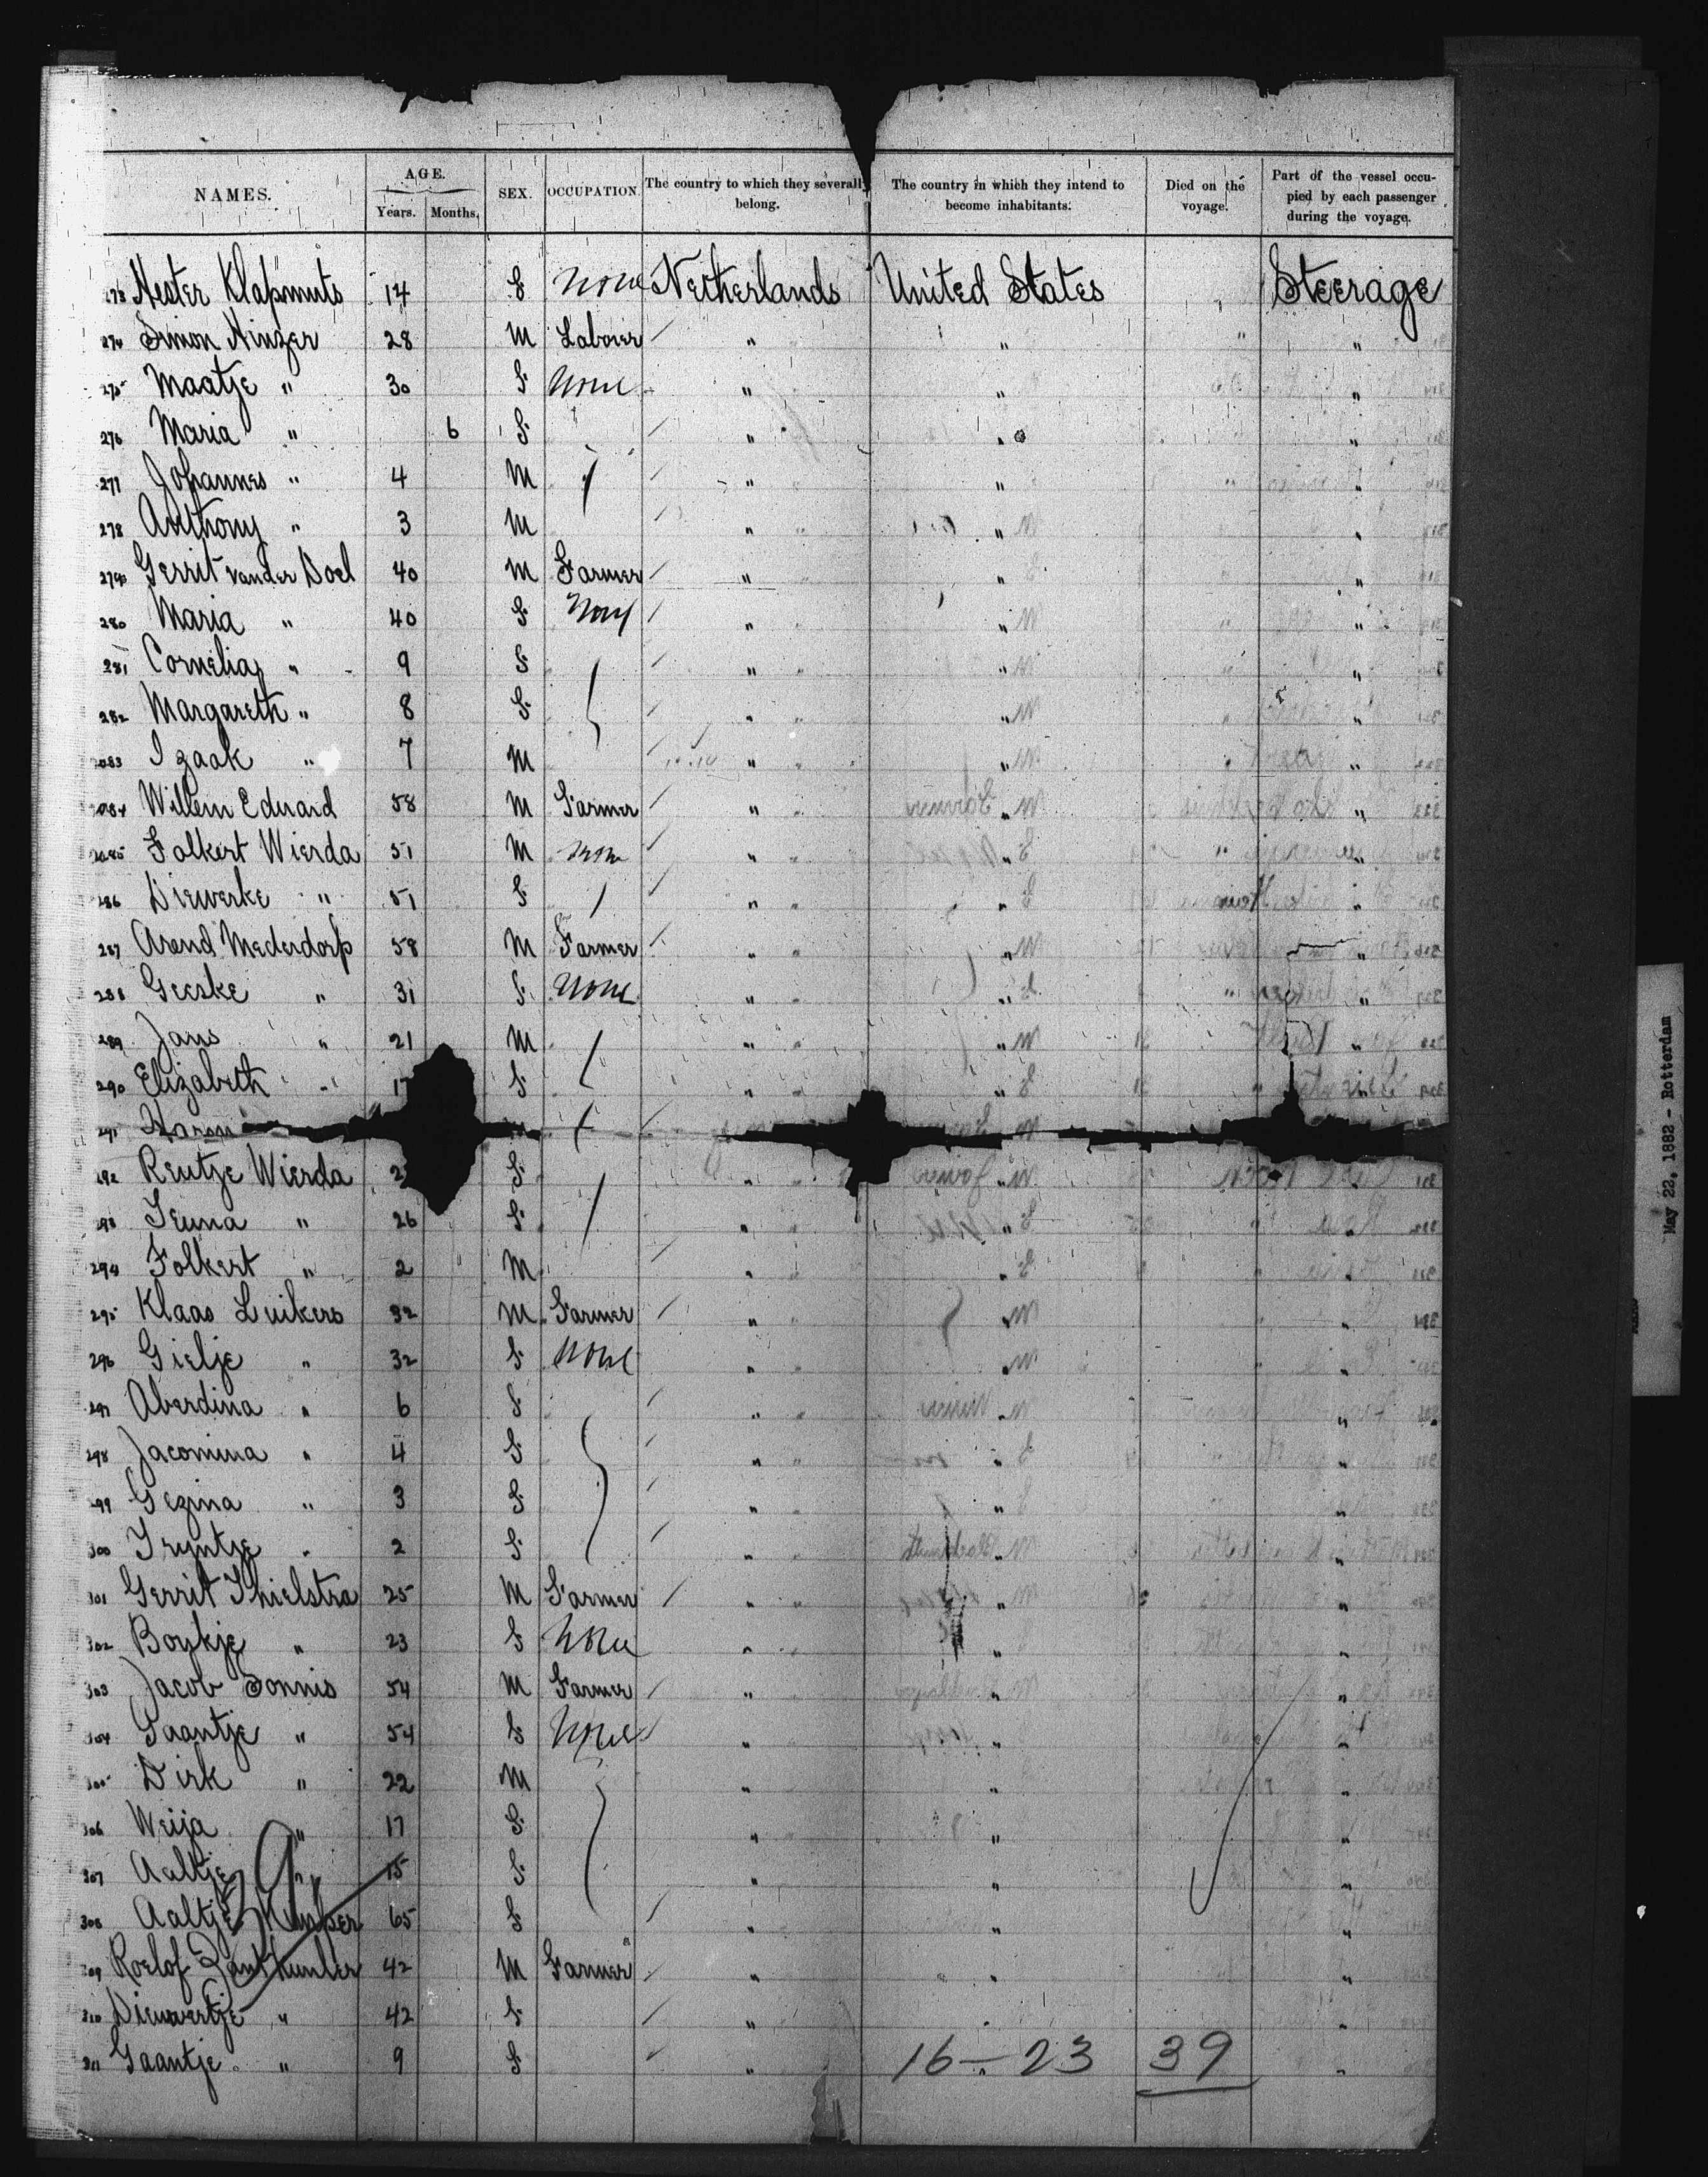 NAMES. AGE. Years. Months. SEX. OCCUPATION. The country to which they severally belong. The country in which they intend to become inhabitants. Died on the voyage. Part of the vessel occupied by each passenger during the voyage.
273 Hester Klapmuts 14 F None Netherlands United States Steerage
274 Simon Hinzer 28 M Labourer / " " "
275 Maatje " 30 F None " " "
276 Maria " 6 F / " " "
277 Johannes " 4 M / " " "
278 Anthony " 3 M / " " "
279 Gerrit van der Doel 40 M Farmer / " " "
280 Maria " 40 F None / " " "
281 Cornelia " 9 F / " " "
282 Margareth " 8 F / " " "
283 Izaak " 7 M / " " "
284 Willem Eduard 58 M Farmer / " " "
285 Folkert Wierda 51 M None / " " "
286 Diewerke " 51 F / " " "
287 Arend Mederdorp 58 M Farmer / " " "
288 Geeske " 31 F None / " " "
289 Jans " 21 M / " " "
290 Elizabeth " F / " " "
291 Harm
292 Reutje Wierda F / " "
293 " 26 F / " " "
294 Folkert " 2 M / " " "
295 Klaas Luikers 32 M Farmer / " " "
296 Gielje " 32 F None / " " "
297 Aberdina " 6 F / " " "
298 Jacomina " 4 F / " " "
299 Gezina " 3 F / " " "
300 Tryntje " 2 F / " " "
301 Gerrit Thielstra 25 M Farmer / " " "
302 Boukje " 23 F None " " "
303 Jacob Tonnis 54 M Farmer / " " "
304 " 54 F None / " " "
305 Dirk " 22 M " " "
306 Weija " 17 F " " "
307 Aaltje " 15 F " " "
308 Aaltje 65 F / " " "
309 Roelof 42 M Farmer / " " "
310 Diewertje " 42 F / " " "
311 " 9 F / " 16 - 23 39 "
39
May 22, 1882 - Rotterdam